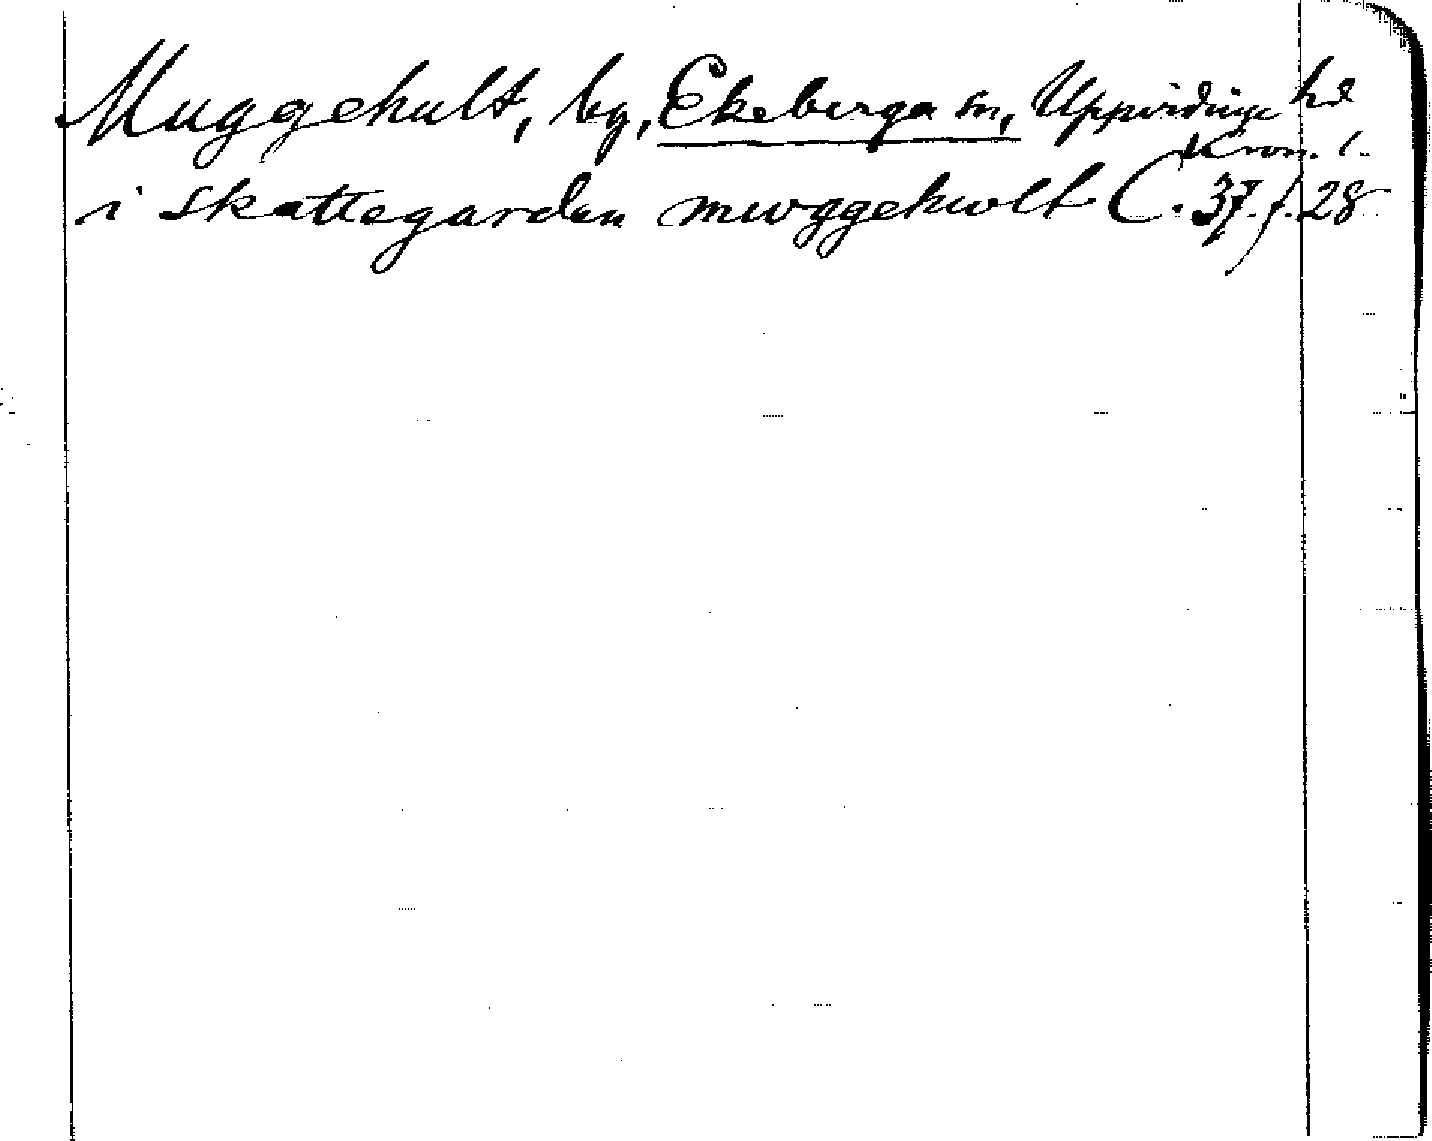 Muggehult, by, Ekeberga sn, Uppvidinge hd
Kron. l.
i skattegarden mwggehwlt C. 37 f. 28